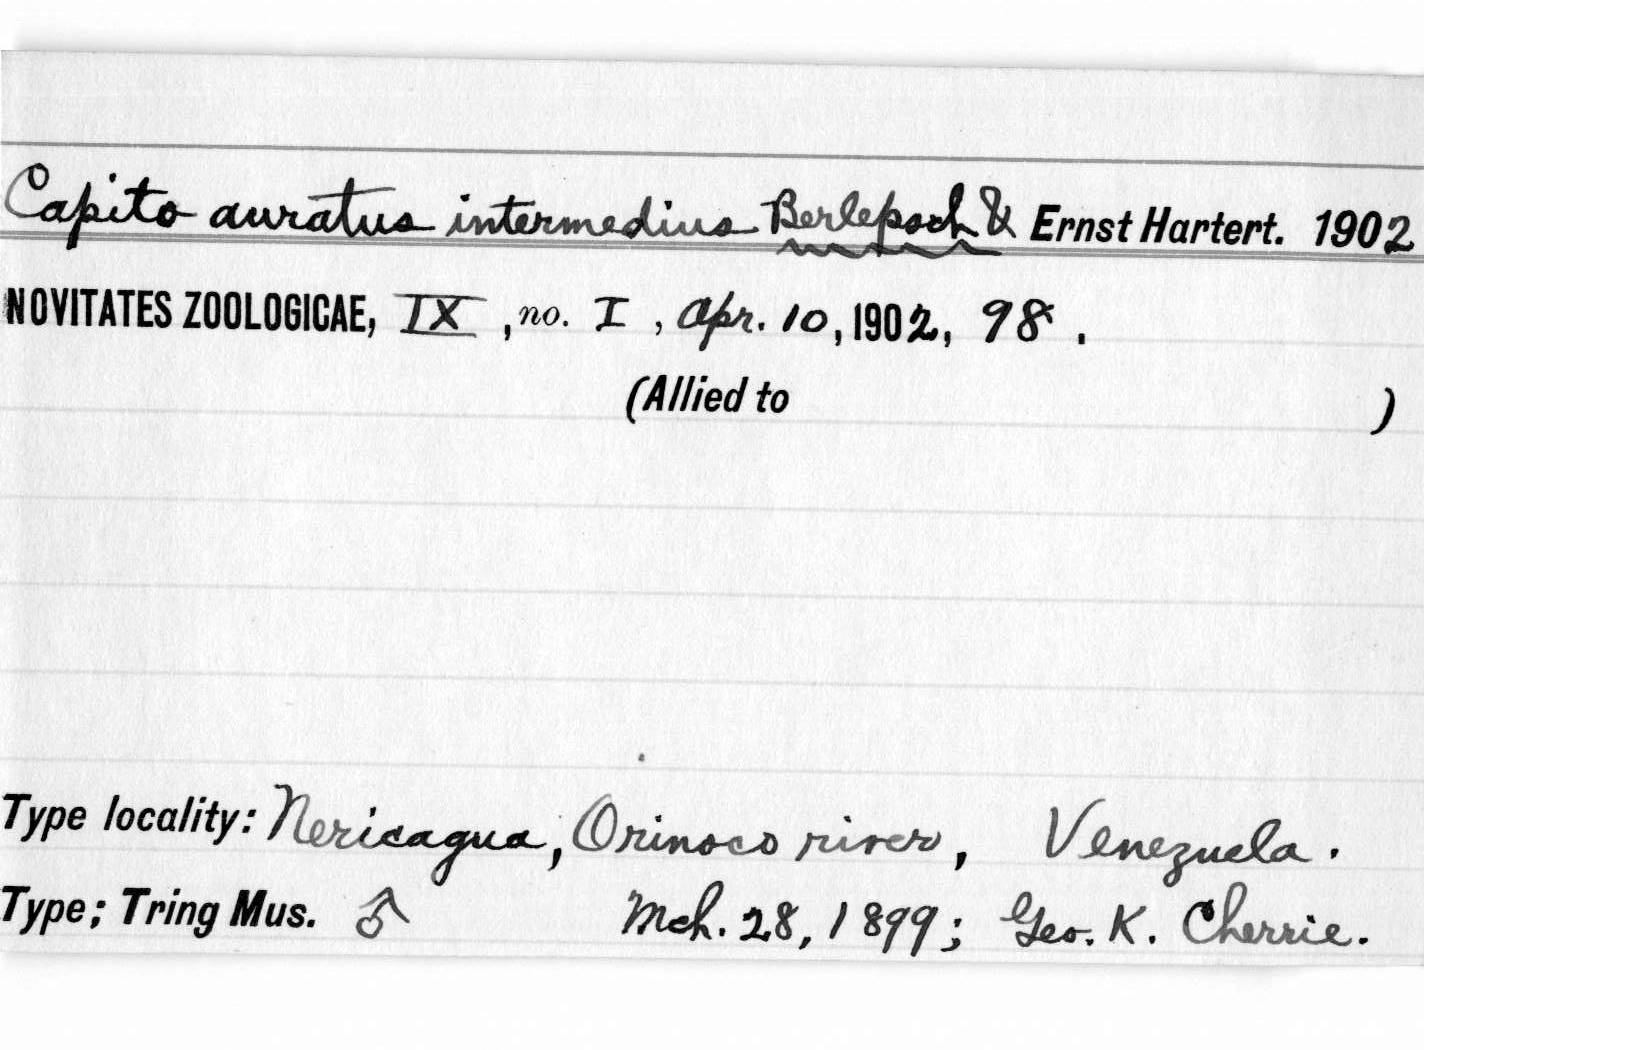 Capito auratus intermedius Berlepsch & Ernst Hartert. 1902
NOVITATES ZOOLOGICAE, IX, no. I, Apr. 10, 1902, 98.
(Allied to )
Type locality: Nericagua, Orinoco river, Venezuela.
Type; Tring Mus. ♂ Mch. 28, 1899; Geo. K. Cherrie.